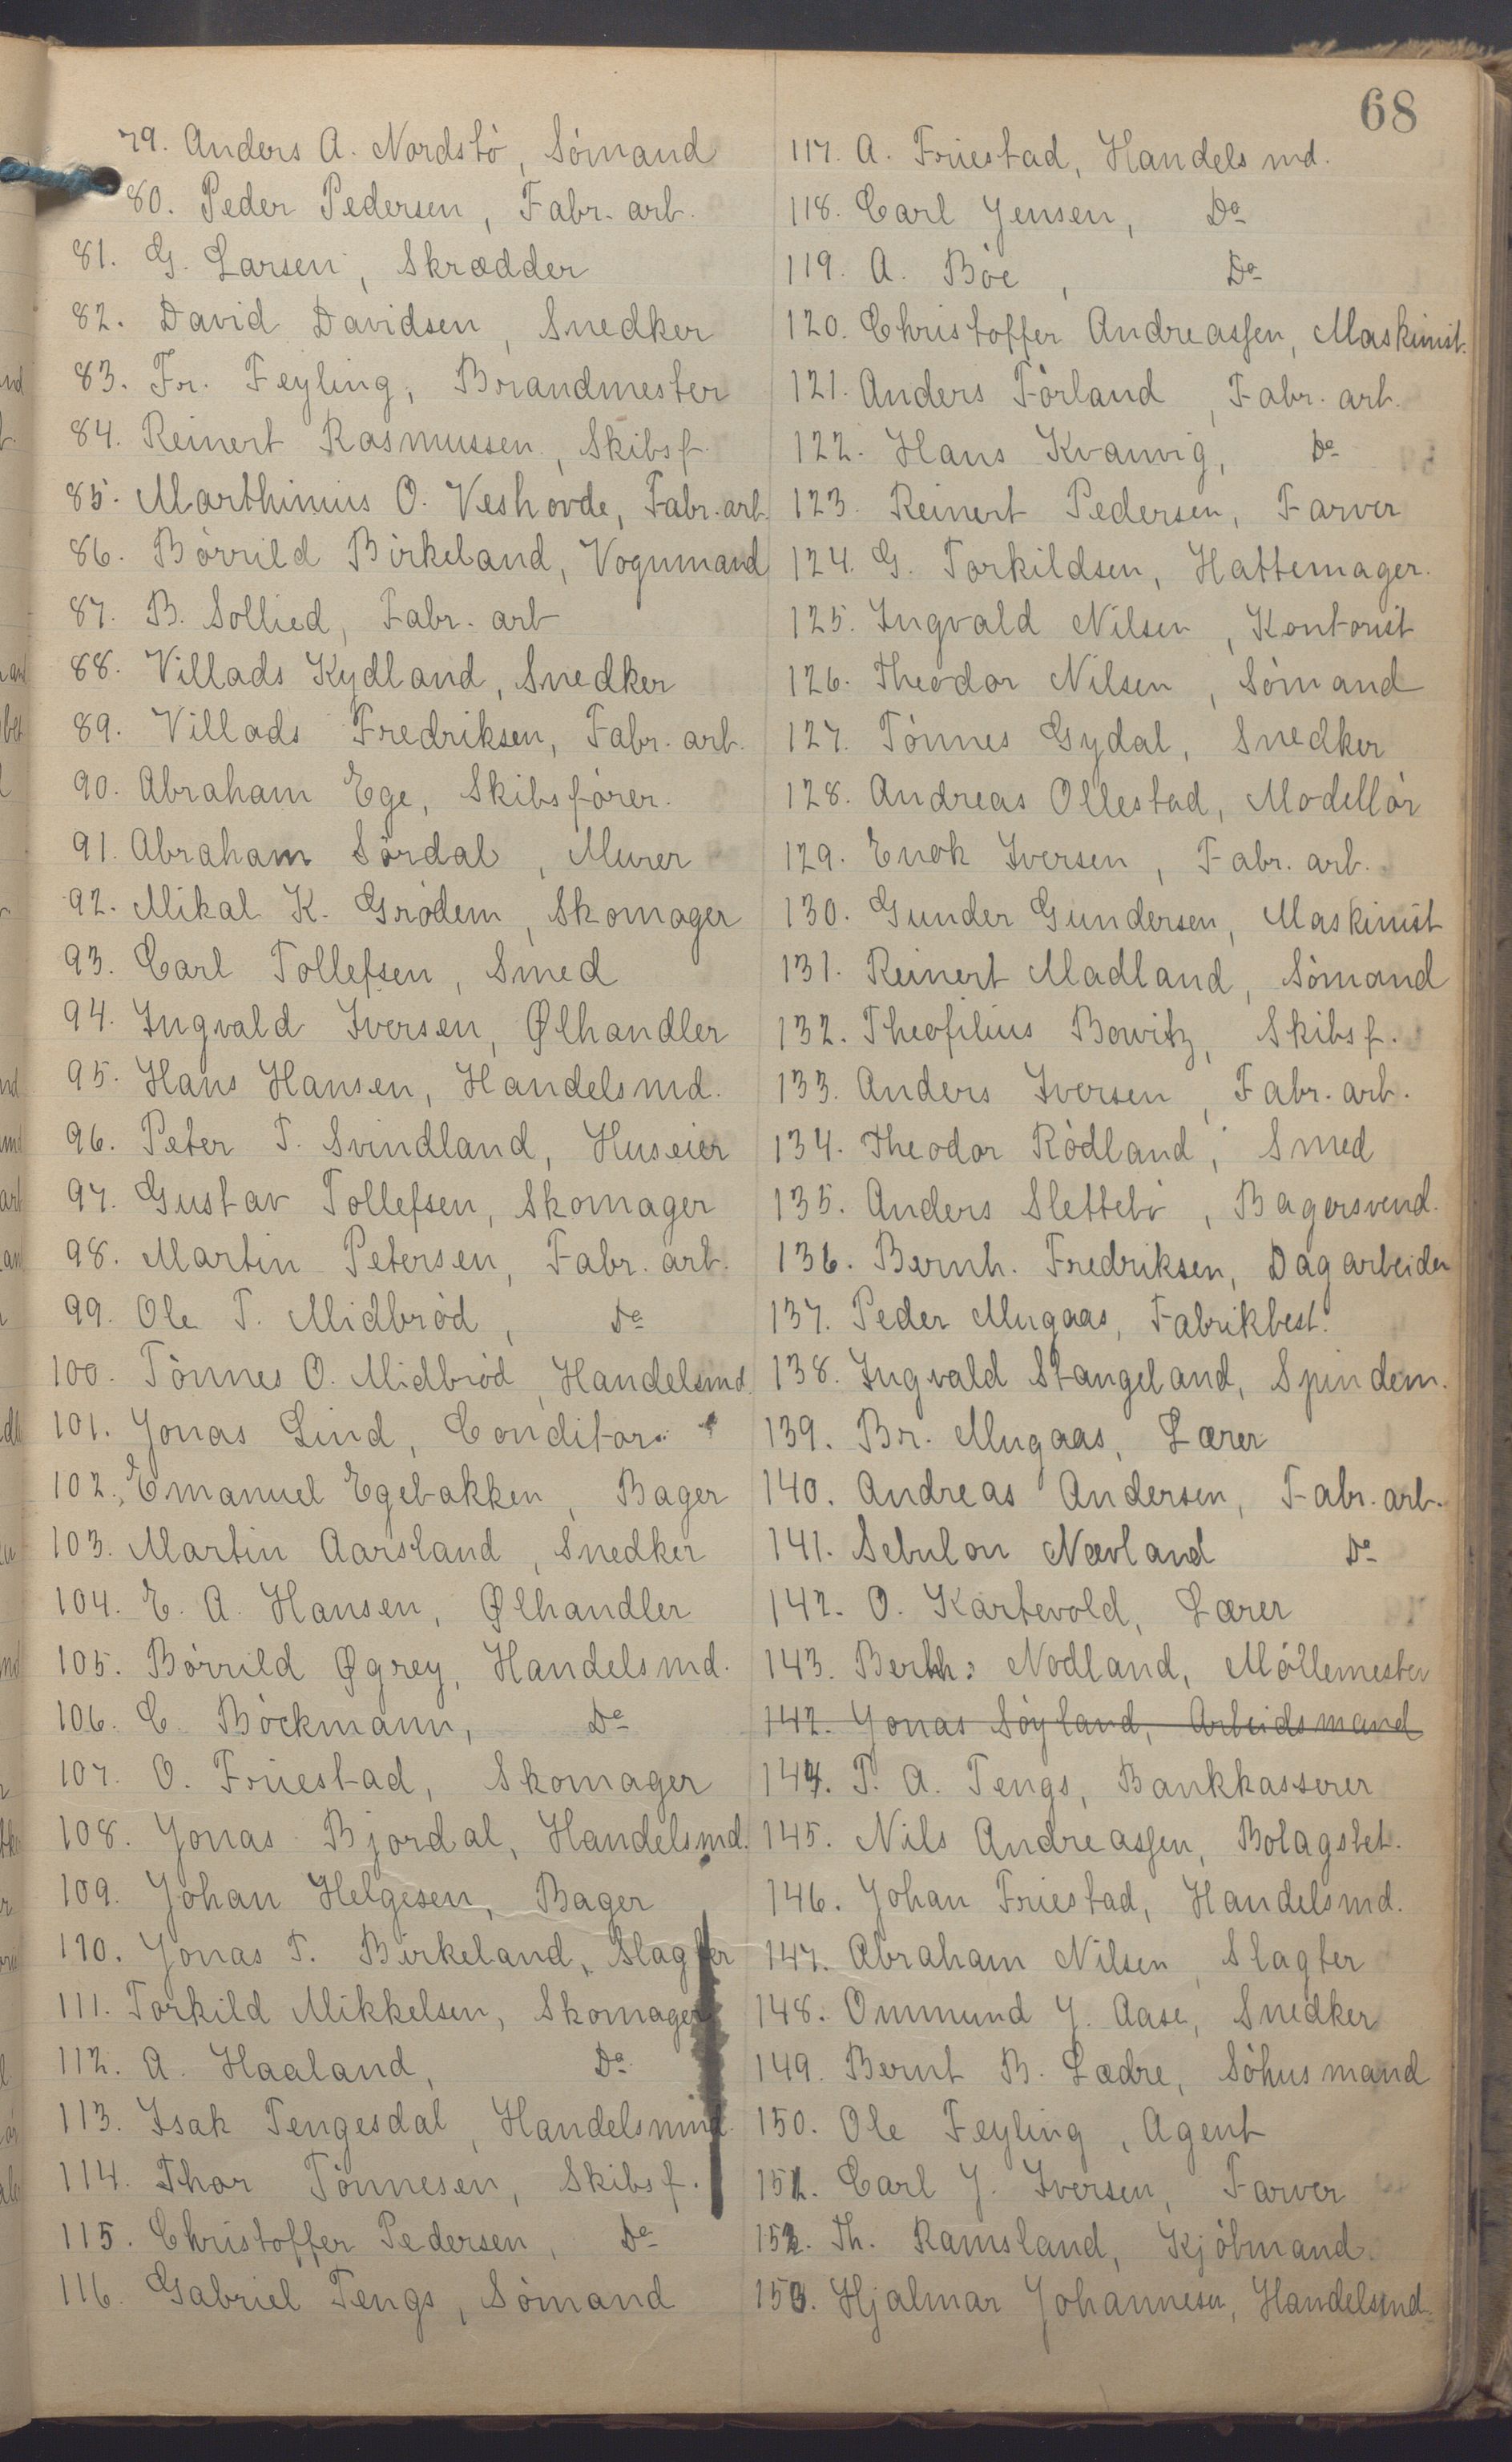 68
79. Anders A. Nordstø, Sømand
80. Peder Pedersen, Fabr. arb.
81. G. Larsen, Skrædder
82. David Davidsen, Snedker
83. Fr. Feyling, Brandmester
84. Reinert Rasmussen, Skibsf.
85. Marthinius O. Veshovde, Fabr. arb.
86. Børrild Birkeland, Vognmand
87. B. Sollied, Fabr. arb
88. Villads Kydland, Snedker
89. Villads Fredriksen, Fabr. arb.
90. Abraham Ege, Skibsfører.
91. Abraham Sørdal, Murer
92. Mikal K. Grødem, Skomager
93. Carl Tollefsen, Smed
94. Ingvald Iversen, Ølhandler
95. Hans Hansen, Handelsmd.
96. Peter T. Svindland, Huseier
97. Gustav Tollefsen, Skomager
98. Martin Petersen, Fabr. arb.
99. Ole T. Midbrød, Do
100. Tønnes O. Midbrød, Handelsmd.
101. Jonas Lind, Conditor.
102. Emanuel Egebakken, Bager
103. Martin Aarsland, Snedker
104. E. A. Hansen, Ølhandler
105. Børrild Øgrey, Handelsmd.
106. C. Böckmann, Do
107. O. Friestad, Skomager
108. Jonas Bjordal, Handelsmd.
109. Johan Helgesen, Bager
110. Jonas T. Birkeland, Slagter
111. Torkild Mikkelsen, Skomager
112. A. Haaland, Do
113. Isak Tengesdal, Handelsmd.
114. Thor Tønnesen, Skibsf.
115. Christoffer Pedersen, Do
116. Gabriel Tengs, Sømand
117. A. Friestad, Handelsmd.
118. Carl Jensen, Do
119. A. Bøe, Do
120. Christoffer Andreassen, Maskinist.
121. Anders Førland, Fabr. arb.
122. Hans Kvanvig, Do
123. Reinert Pedersen, Farver
124. G. Torkildsen, Hattemager.
125. Ingvald Nilsen, Kontorist
126. Theodor Nilsen, Sømand
127. Tønnes Gydal, Snedker
128. Andreas Ollestad, Modellør
129. Enok Iversen, Fabr. arb.
130. Gunder Gundersen, Maskinist
131. Reinert Madland, Sømand
132. Theofilius Bowitz, Skibsf.
133. Anders Iversen, Fabr. arb.
134. Theodor Rødland, Smed
135. Anders Slettebø, Bagersvend.
136. Bernh. Fredriksen, Dagarbeider
137. Peder Mugaas, Fabrikbest.
138. Ingvald Stangeland, Spindem.
139. Br. Mugaas, Lærer
140. Andreas Andersen, Fabr. arb.
141. Sebulon Nævland Do
142. O. Kartevold, Lærer
143. Berth: Nodland, Møllemester
142. Jonas Søyland, Arbeidsmand
144. T. A. Tengs, Bankkasserer
145. Nils Andreassen, Bolagsbet.
146. Johan Friestad, Handelsmd.
147. Abraham Nilsen, Slagter
148. Ommund J. Aase, Snedker
149. Bernt B. Lædre, Søhusmand
150. Ole Feyling, Agent
151. Carl J. Iversen, Farver
152. Th. Ramsland, Kjøbmand.
153. Hjalmar Johannesen, Handelsmd.